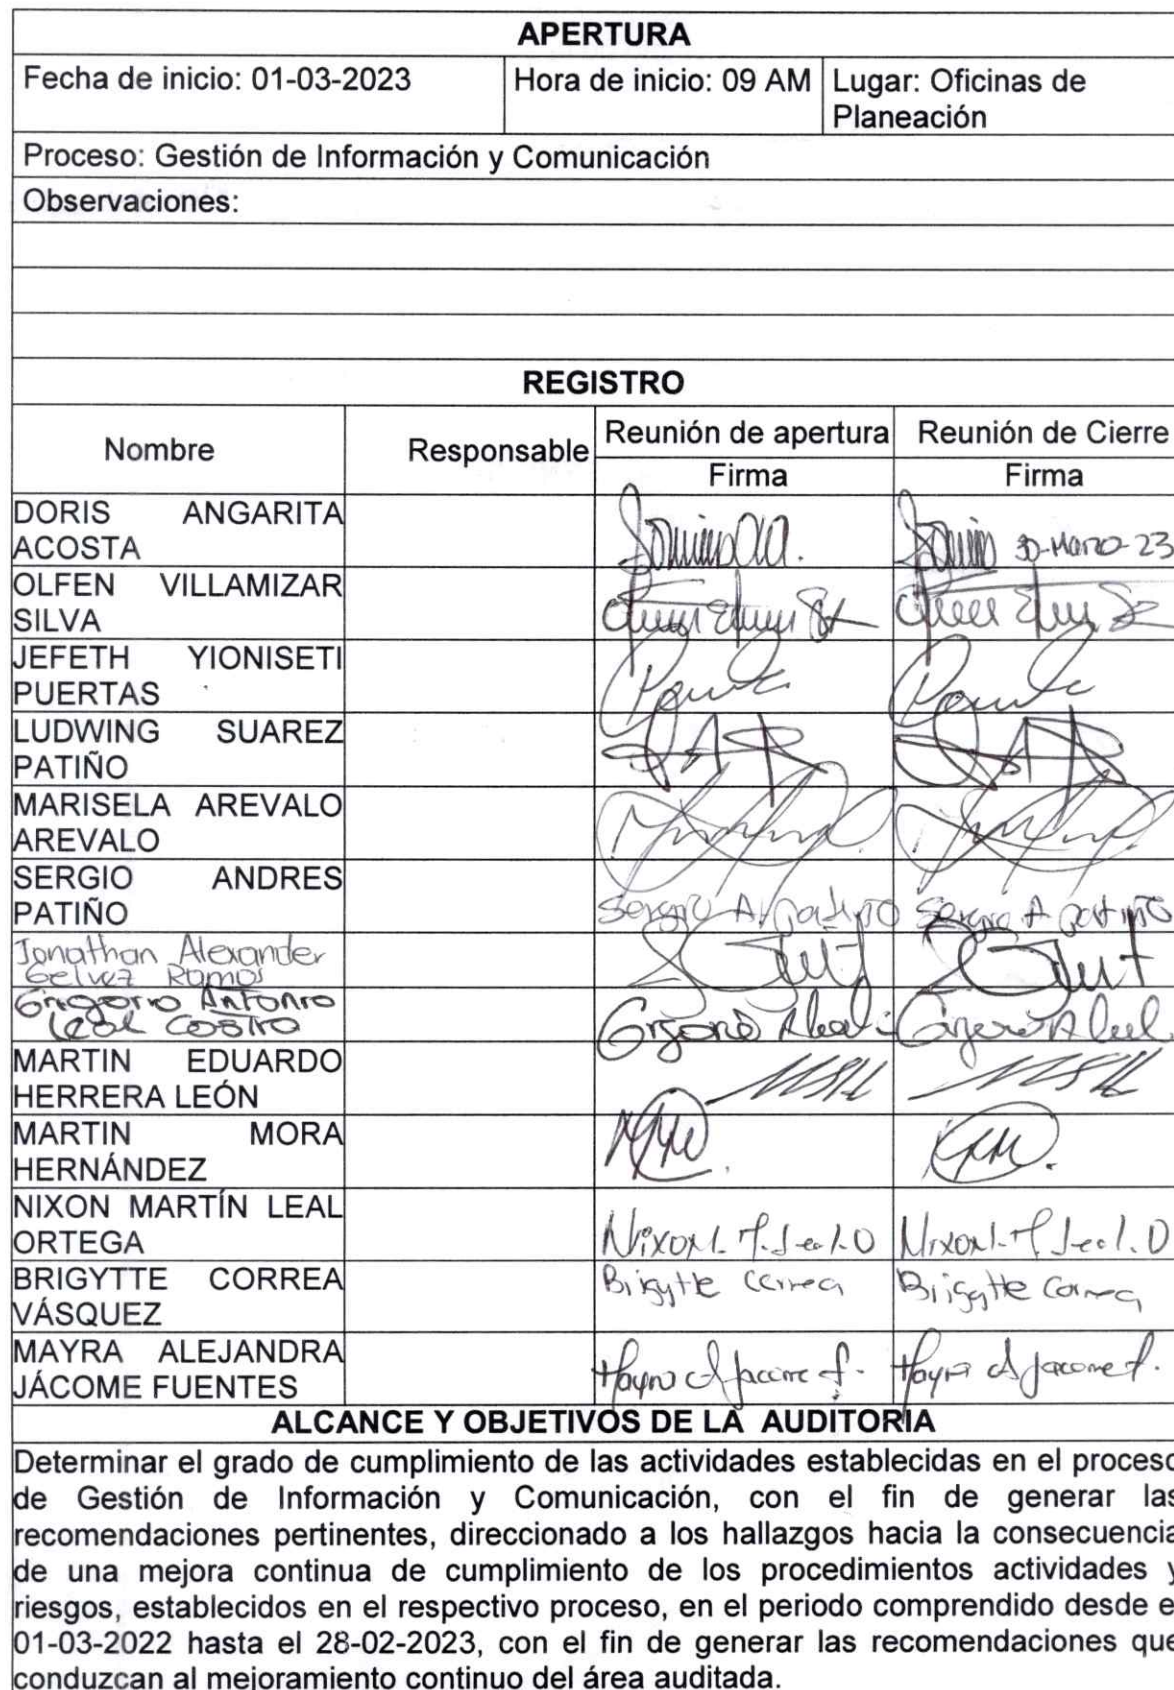 APERTURA
Fecha de inicio: 01-03-2023 Hora de inicio: 09 AM Lugar: Oficinas de
Planeación
Proceso: Gestión de Información y Comunicación
Observaciones:
REGISTRO
Nombre Responsable Reunión de apertura Reunión de Cierre
Firma Firma
DORIS ANGARITA
ACOSTA
30-Marzo-23
OLFEN VILLAMIZAR
SILVA
JEFETH YIONISETI
PUERTAS
LUDWING SUAREZ
PATIÑO
MARISELA AREVALO
AREVALO
SERGIO ANDRES
PATIÑO
Sergio A Patiño Sergio A Patiño
Jonathan Alexander
Gelvez Ramos
Gregorio Antonio
Leal Castro
MARTIN EDUARDO
HERRERA LEÓN
MARTIN MORA
HERNÁNDEZ
NIXON MARTÍN LEAL
ORTEGA
Nixon M. Leal O Nixon M Leal. O
BRIGYTTE CORREA
VÁSQUEZ
Brigytte Correa Brigytte Correa
MAYRA ALEJANDRA
JÁCOME FUENTES
Mayra A Jacome f. Mayra A Jacome f.
ALCANCE Y OBJETIVOS DE LA AUDITORIA
Determinar el grado de cumplimiento de las actividades establecidas en el proceso
de Gestión de Información y Comunicación, con el fin de generar las
recomendaciones pertinentes, direccionado a los hallazgos hacia la consecuencia
de una mejora continua de cumplimiento de los procedimientos actividades y
riesgos, establecidos en el respectivo proceso, en el periodo comprendido desde e
01-03-2022 hasta el 28-02-2023, con el fin de generar las recomendaciones que
conduzcan al mejoramiento continuo del área auditada.